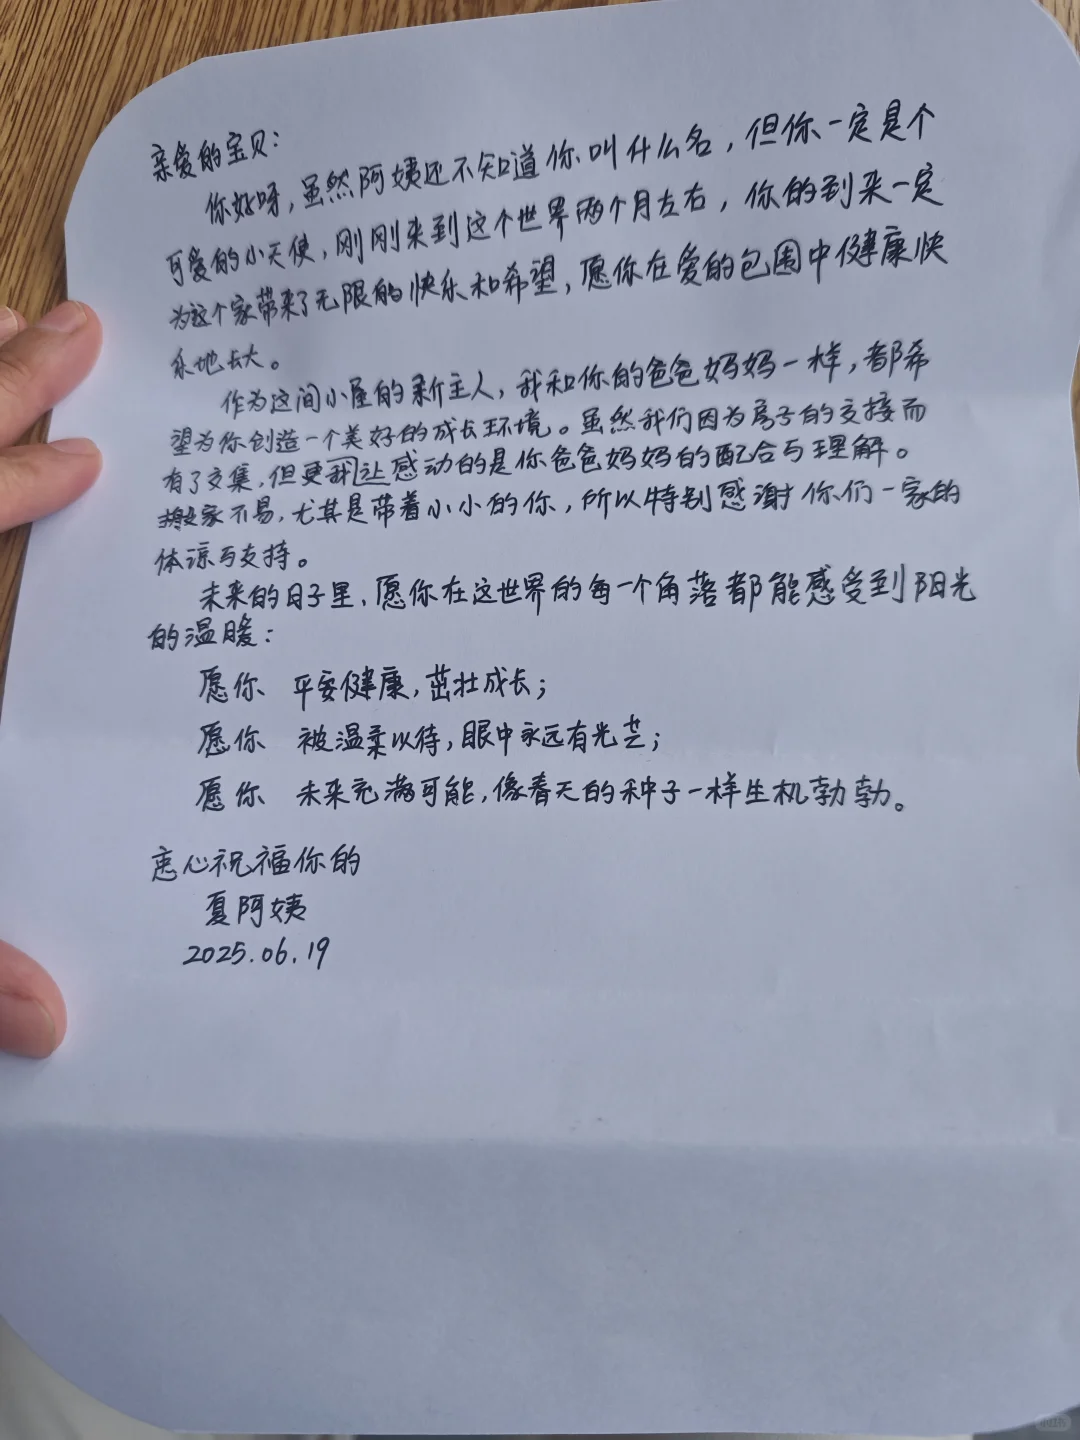 亲爱的宝贝：
你好呀，虽然阿姨还不知道你叫什么名，但你一定是个
可爱的小天使，刚刚来到这个世界两个月左右，你的到来一定
为这个家带来了无限的快乐和希望，愿你在爱的包围中健康快
乐地长大。
作为这间小屋的新主人，我和你的爸爸妈妈一样，都希
望为你创造一个美好的成长环境。虽然我们因为房子的交接而
有了交集，但更我让感动的是你爸爸妈妈的配合与理解。
搬家不易，尤其是带着小小的你，所以特别感谢你们一家的
体谅与支持。
未来的日子里，愿你在这世界的每一个角落都能感受到阳光
的温暖：
愿你 平安健康，茁壮成长；
愿你 被温柔以待，眼中永远有光芒；
愿你 未来充满可能，像春天的种子一样生机勃勃。
衷心祝福你的
夏阿姨
2025.06.19